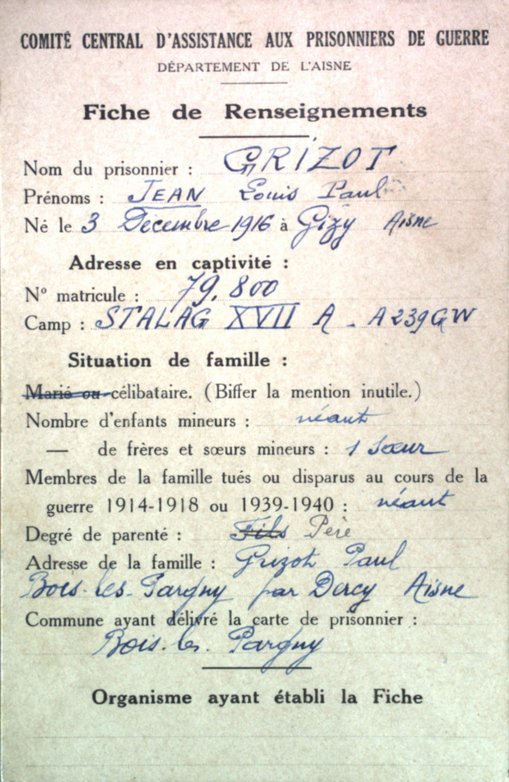 COMITÉ CENTRAL D'ASSISTANCE AUX PRISONNIERS DE GUERRE
DÉPARTEMENT DE L'AISNE
Fiche de Renseignements
Nom du prisonnier : GRIZOT
Prénoms : JEAN Louis Paul
Né le 3 Décembre 1916 à Gizy Aisne
Adresse en captivité :
N° matricule : 79.800
Camp : STALAG XVII A - A239GW
Situation de famille :
Marié ou célibataire. (Biffer la mention inutile.)
Nombre d'enfants mineurs : néant
— de frères et sœurs mineurs : 1 Sœur
Membres de la famille tués ou disparus au cours de la
guerre 1914-1918 ou 1939-1940 : néant
Degré de parenté : Fils Père
Adresse de la famille : Grizot Paul
Bois-les-Pargny par Dercy Aisne
Commune ayant délivré la carte de prisonnier :
Bois-les-Pargny
Organisme ayant établi la Fiche